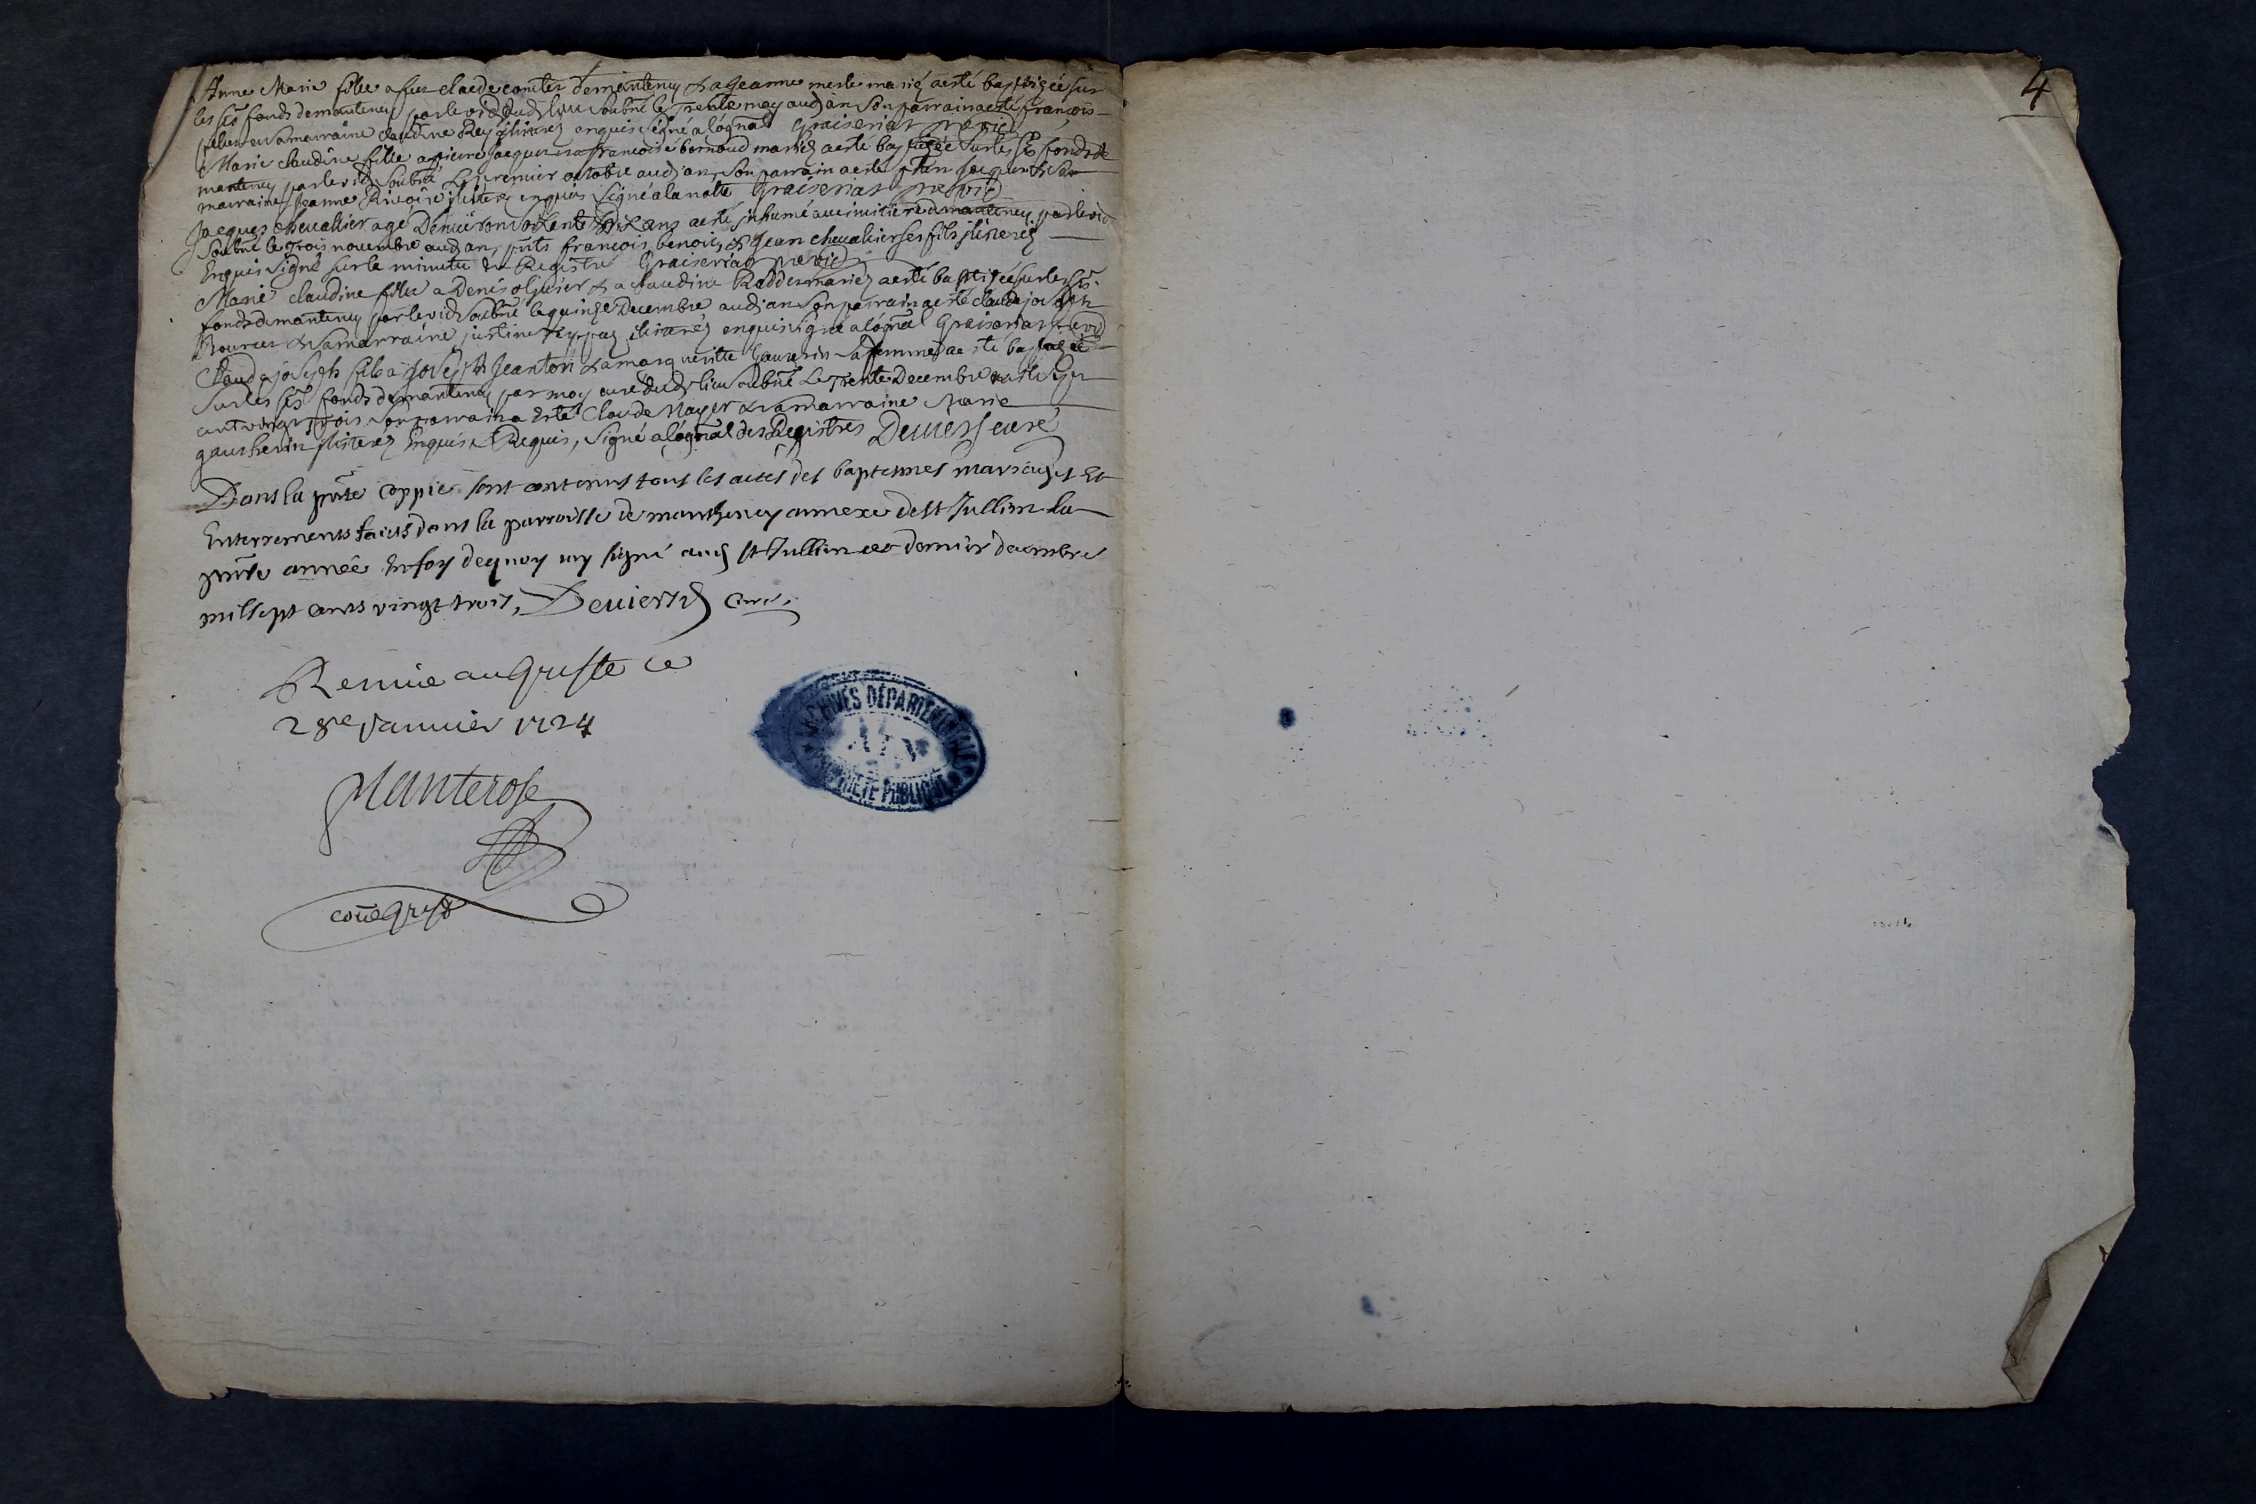 Anne Marie fille a feu claude comter demanteney & a Jeanne merle mariés a esté baptizée sur
les sts fonds demanteney par le vic dud lieu soubné le trente may aud an son parrain a esté françois
et sa marraine claudine Rey illiterés enquis signé a lógnal Graiseriat pre vic
Marie claudine fille a pierre Jacquet & a francoise bernaud mariés a esté baptizée sur les sts fonds de
manteney par le vic soubné le premier octobre aud an son parrain a esté Jacquet & sa
marraine Jeanne illiterés enquis signé a la notte Graiseriat pre vic
Jacques chevallier agé Denuiron soixante dix ans a esté inhumé au cimitiere de manteney par le vic
soubné le trois novembre aud an, pnts françois, benoit, & Jean chevalier ses fils illiterés
Enquis signé sur la minutte du Registre Graiseriat pre vic
Marie claudine fille a Denis & a claudine mariés a esté baptizée sur les sts
fonds demanteney par le vic soubné le quinze Decembre aud an son parrain a esté claude joseph
& sa marraine justine illiterés enquis signé a lógnal Graiseriat pre vic
Claude joseph fils a joseph Jeanton & a marguerite sa femme a esté baptizé
sur les sts fonds demanteney par moy curé dud lieu soubné Le trente Decembre mil sept
cent vingt trois son parrain a Esté Claude Mayer & sa marraine Marie
gautherin illiterés Enquis & Requis, signé a lógnal des Registres Deuiers curé
Dans la pnte Coppie sont contenus tous les actes des baptesmes mariages Et
Enterrements faicts dans la parroisse de manteney annexe de st Jullien la
pnte année En foy dequoy iay signé aud st Jullien ce dernier decembre
mil sept cents vingt trois, Deuiers Curé,
Remue au Greffe ce
28e Janvier 1724
Manterose
coñe Greff
ARCHIVES DÉPARTEMENTALES
AIN
PROPRIÉTÉ PUBLIQUE
4